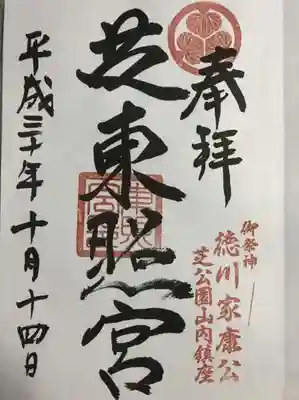 奉拝
御祭神
徳川家康公
芝公園山内鎮座
芝東照宮
東照宮
平成三十年十月十四日